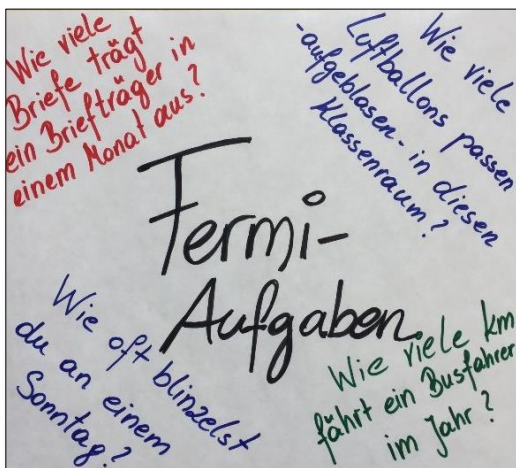 Wie viele
Briefe trägt
ein Briefträger in
einem Monat aus?
Wie viele
Luftballons passen
-aufgeblasen- in diesen
Klassenraum?
Fermi-
Aufgaben
Wie oft blinzelst
du an einem
Sonntag?
Wie viele km
fährt ein Busfahrer
im Jahr?